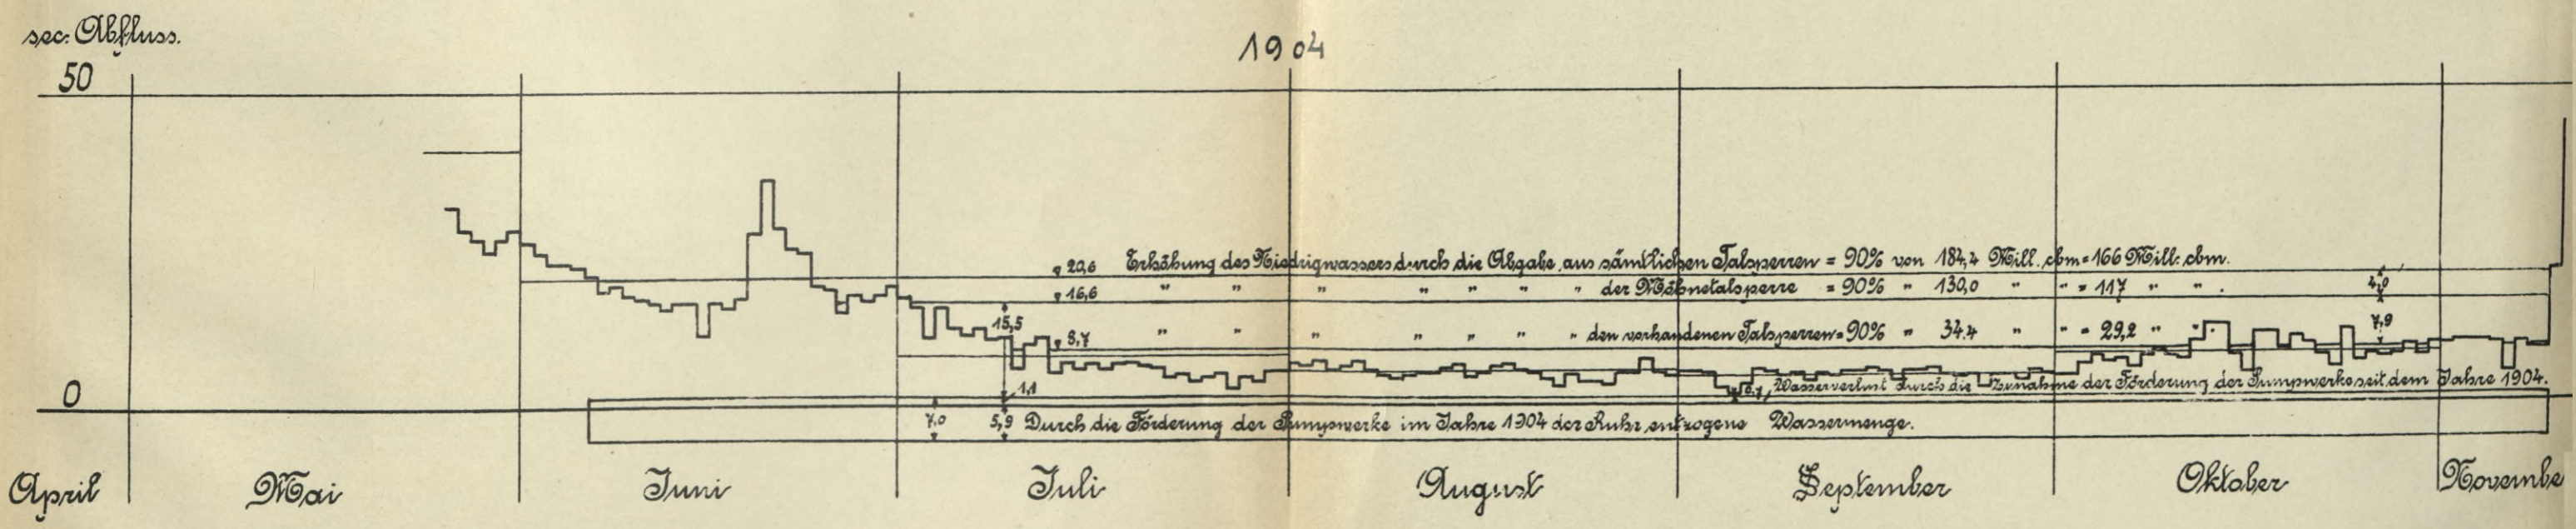 sec. Abfluss.
1904
50
20,6 Erhöhung des Niedrigwassers durch die Abgabe aus sämtlichen Talsperren = 90% von 184,4 Mill. cbm = 166 Mill. cbm.
16,6 " " " " " " " der Möhnetalsperre = 90% " 130,0 " " = 117 " " .
4,0
15,5
8,7 " " " " " " " den vorhandenen Talsperren = 90% " 34.4 " " = 29,2 " " .
7,9
1,1
0,7, Wasserverlust durch die Zunahme der Förderung der Pumpwerke seit dem Jahre 1904.
0
7,0
5,9 Durch die Förderung der Pumpwerke im Jahre 1904 der Ruhr entzogene Wassermenge.
April Mai Juni Juli August September Oktober Novembe